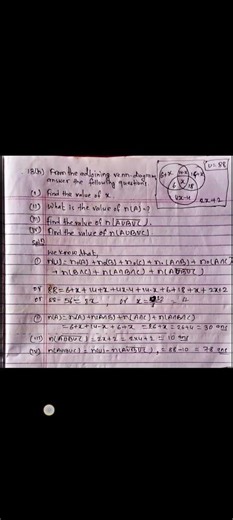 U=88
18(h) From the adjoining venn-diagram,
answer the following questions
(i) Find the value of x.
(ii) What is the value of n(A)?
(iii) Find the value of n(A∪B∪C).
(iv) Find the value of n(A∪B∪C).
6+x 14-x
6 x 18
4x-4 2x+2
Solⁿ
We know that,
(i) n(U) = no(A) + no(B) + no(C) + no(A∩B) + no(A∩C)
+ n(B∩C) + n(A∩B∩C) + n(A∪B∪C)
or 88 = 6+x+14+x+4x-4+14-x+6+18+x+2x+2
(ii) n(A) = no(A) + n(A∩B) + n(A∩C) + n(A∩B∩C)
= 6+x+14-x+6+x = 26+x = 26+4 = 30 ans
(iii) n(A∪B∪C) = 2x+2 = 2x4+2 = 10 ans
(iv) n(A∪B∪C) = n(U) - n(A∪B∪C) = 88-10 = 78 ans